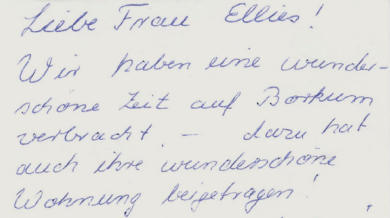 Liebe Frau Ellies!
Wir haben eine wunder-
schöne Zeit auf Borkum
verbracht. – dazu hat
auch ihre wunderschöne
Wohnung beigetragen!